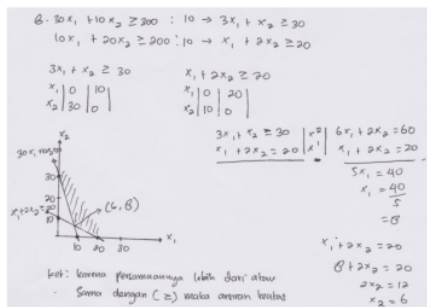 B. 30x₁ + 10x₂ ≥ 300 : 10 → 3x₁ + x₂ ≥ 30
10x₁ + 20x₂ ≥ 200 : 10 → x₁ + 2x₂ ≥ 20
3x₁ + x₂ ≥ 30
x₁ | 0 | 10
x₂ | 30 | 0
x₁ + 2x₂ ≥ 20
x₁ | 0 | 20
x₂ | 10 | 0
3x₁ + x₂ ≥ 30 | x2 | 6x₁ + 2x₂ = 60
x₁ + 2x₂ = 20 | x1 | x₁ + 2x₂ = 20
-
5x₁ = 40
x₁ = 40
5
= 8
x₁ + 2x₂ = 20
8 + 2x₂ = 20
2x₂ = 12
x₂ = 6
x₂
30
20
10
(6,8)
10 20 30
x₁
ket: karena persamaannya lebih dari atau
sama dengan (≥) maka